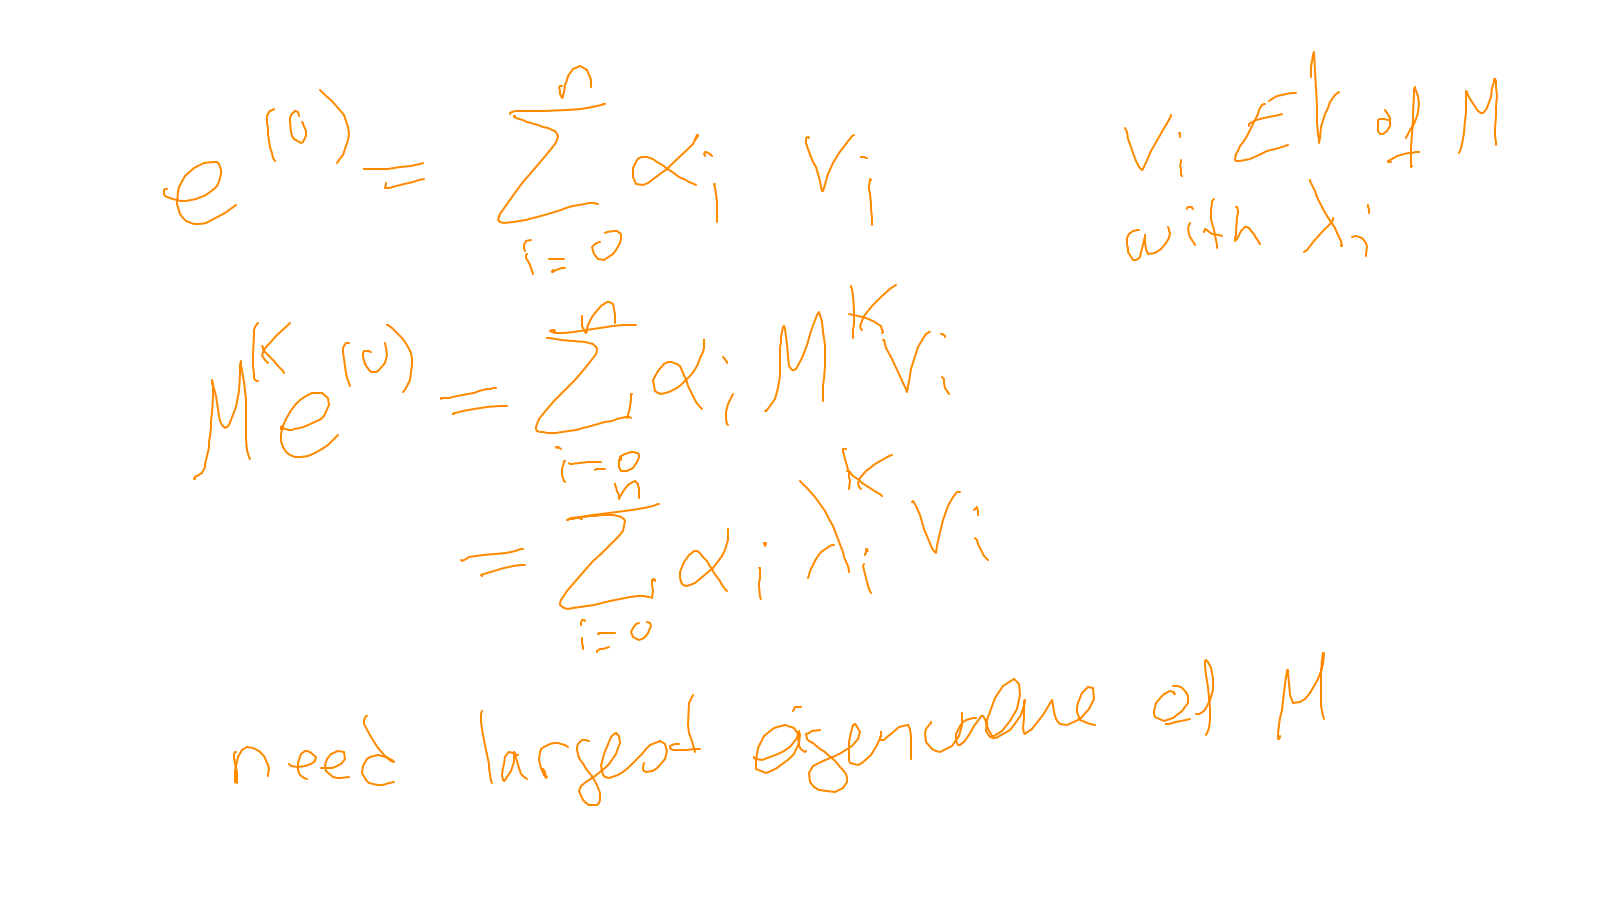 e^(0) = ∑_{i=0}^{n} α_i v_i    v_i EV of M
with λ_i
M^K e^(0) = ∑_{i=0}^{n} α_i M^K v_i
= ∑_{i=0}^{n} α_i λ_i^K v_i
need largest eigenvalue of M